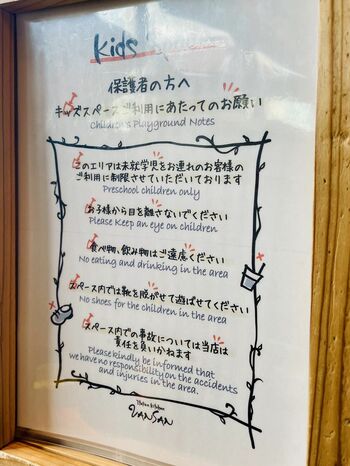 Kids
保護者の方へ
キッズスペースご利用にあたってのお願い
Children's Playground Notes
このエリアは未就学児をお連れのお客様の
ご利用に制限させていただいております
Preschool children only
お子様から目を離さないでください
Please Keep an eye on children
食べ物、飲み物はご遠慮ください
No eating and drinking in the area
スペース内では靴を脱がせて遊ばせてください
No shoes for the children in the area
スペース内での事故については当店は
責任を負いかねます
Please kindly be informed that
we have no responsibility on the accidents
and injuries in the area.
Italian Kitchen
VANSAN